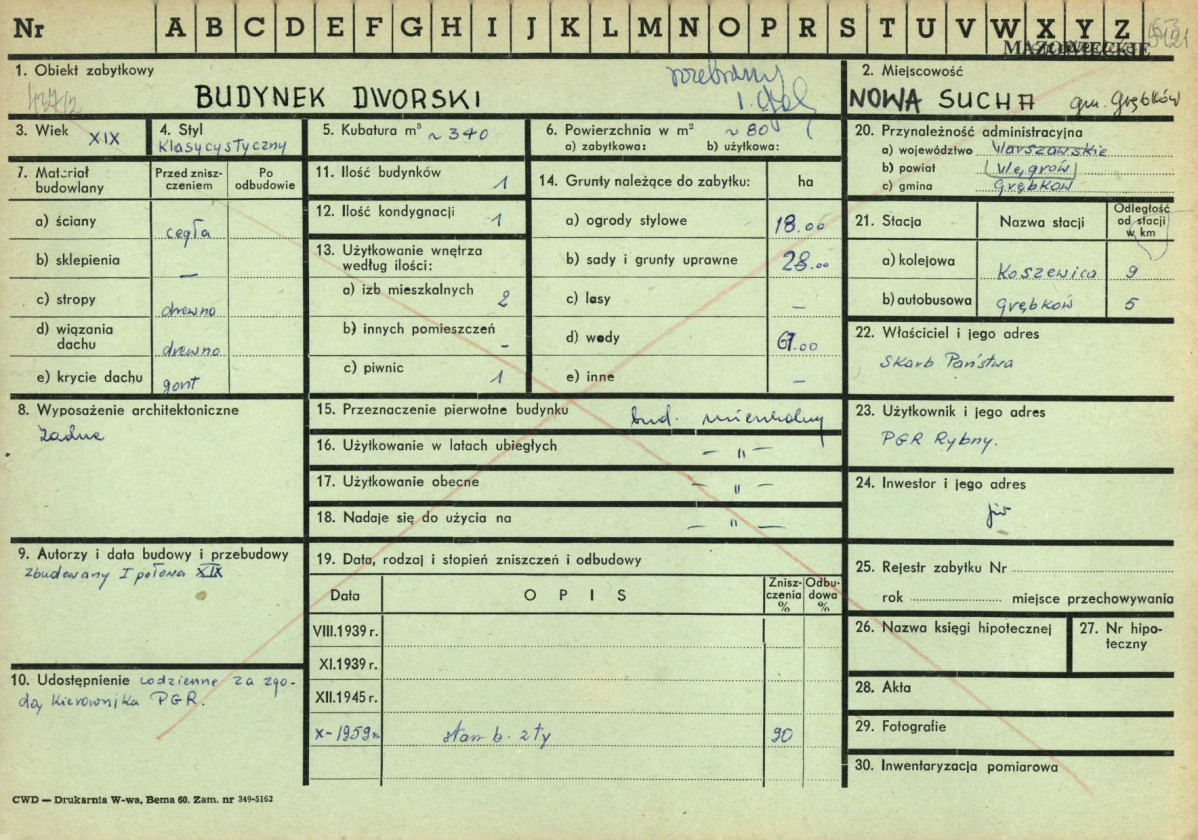 Nr A B C D E F G H I J K L M N O P R S T U V W X Y Z
MAZOWIECKIE
1. Obiekt zabytkowy
BUDYNEK DWORSKI
rozebrany
2. Miejscowość
NOWA SUCHA gm. Grębków
3. Wiek XIX
4. Styl
klasycystyczny
5. Kubatura m³ ~ 340
6. Powierzchnia w m² ~ 80
a) zabytkowa: b) użytkowa:
7. Materiał budowlany
Przed zniszczeniem
Po odbudowie
a) ściany cegła
b) sklepienia —
c) stropy drewno
d) wiązania dachu drewno
e) krycie dachu gont
8. Wyposażenie architektoniczne
żadne
9. Autorzy i data budowy i przebudowy
Zbudowany I połowa XIX
10. Udostępnienie codzienne za zgo-
dą kierownika PGR.
11. Ilość budynków 1
12. Ilość kondygnacji 1
13. Użytkowanie wnętrza
według ilości:
a) izb mieszkalnych 2
b) innych pomieszczeń -
c) piwnic 1
14. Grunty należące do zabytku: ha
a) ogrody stylowe 18.00
b) sady i grunty uprawne 28.00
c) lasy —
d) wody 61.00
e) inne —
15. Przeznaczenie pierwotne budynku bud. mieszkalny
16. Użytkowanie w latach ubiegłych — " —
17. Użytkowanie obecne — " —
18. Nadaje się do użycia na — " —
19. Data, rodzaj i stopień zniszczeń i odbudowy
Data
OPIS
Znisz-
czenia
%
Odbu-
dowa
%
VIII.1939 r.
XI.1939 r.
XII.1945 r.
X-1959 r. stan b. zły 90
20. Przynależność administracyjna
a) województwo Warszawskie
b) powiat Węgrów
c) gmina Grębków
21. Stacja
Nazwa stacji
Odległość
od stacji
w km
a) kolejowa Koszewica 9
b) autobusowa Grębków 5
22. Właściciel i jego adres
Skarb Państwa
23. Użytkownik i jego adres
PGR Rybny.
24. Inwestor i jego adres
jw
25. Rejestr zabytku Nr
rok miejsce przechowywania
26. Nazwa księgi hipotecznej
27. Nr hipo-
teczny
28. Akta
29. Fotografie
30. Inwentaryzacja pomiarowa
CWD — Drukarnia W-wa, Bema 60. Zam. nr 349-5162